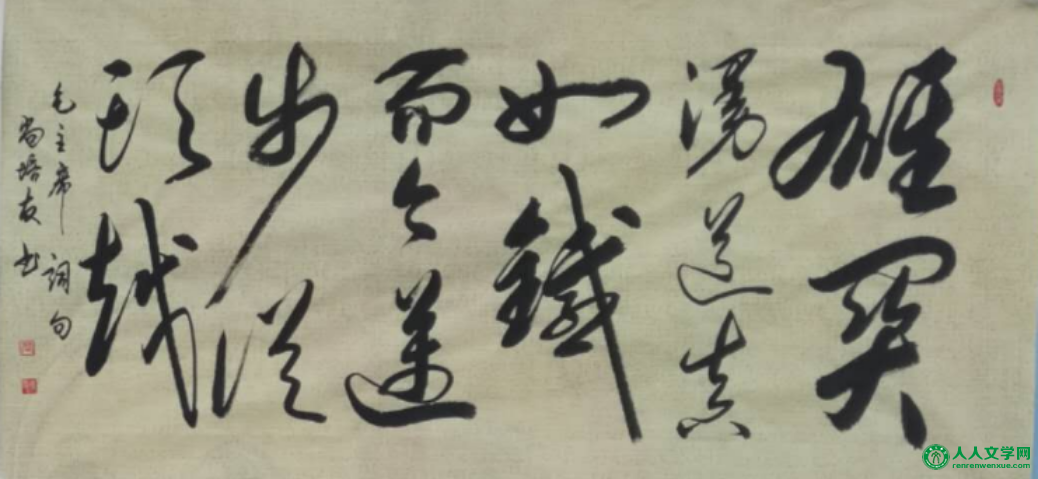 雄関
漫道真
如鐵
而今邁
步従
頭越
毛主席詞句
尚培友书
人人文学网
renrenwenxue.com